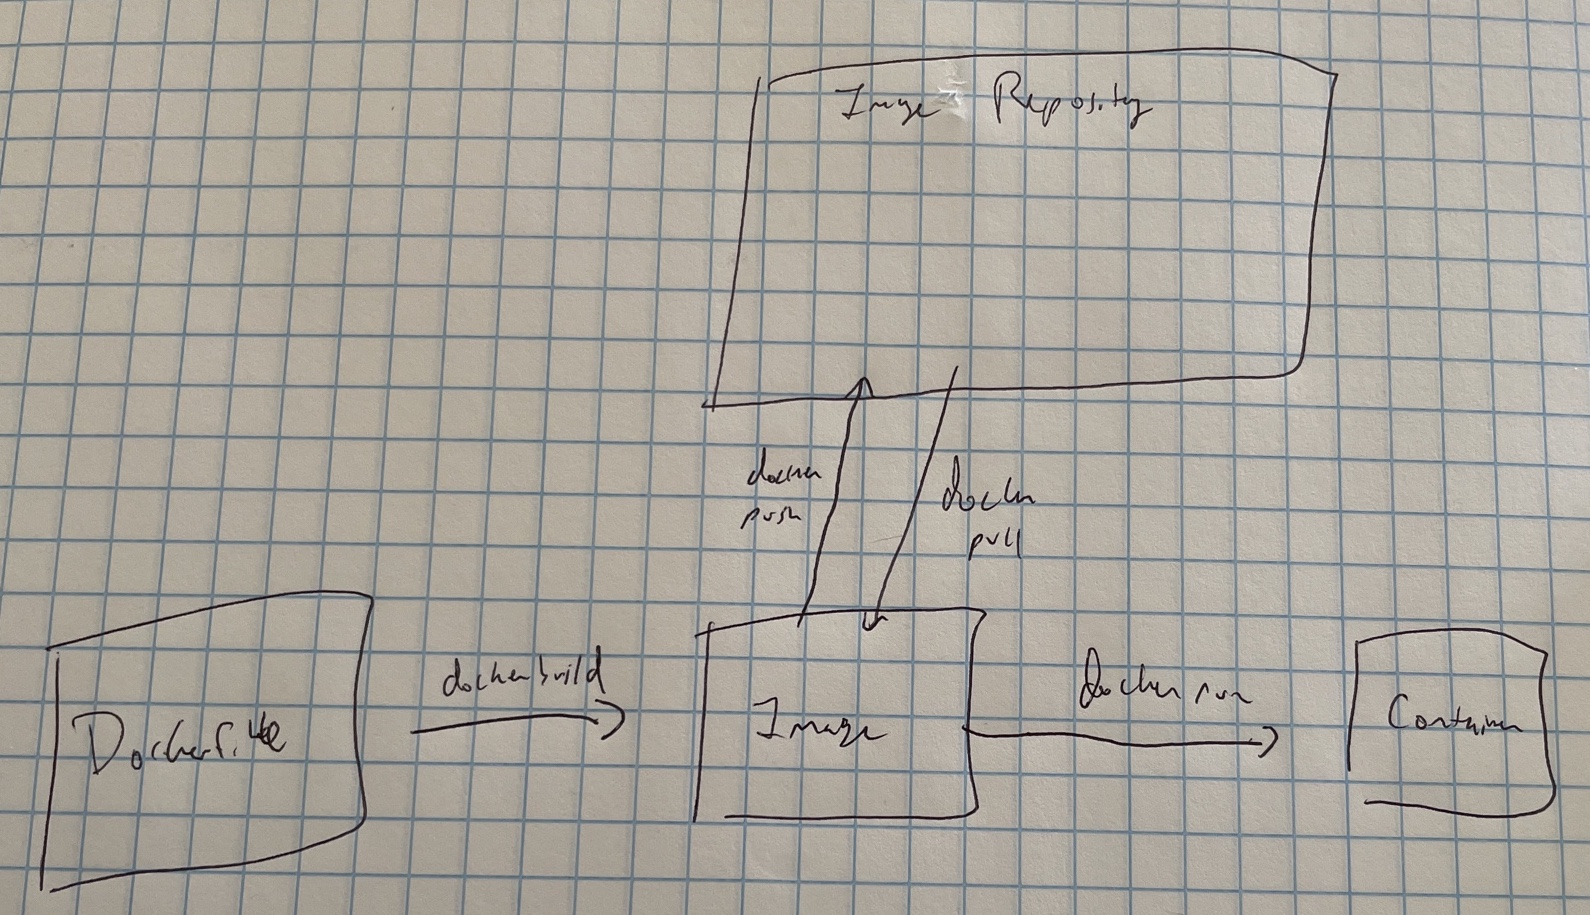 Image Repository
docker
push
docker
pull
Dockerfile
docker build
Image
docker run
Container